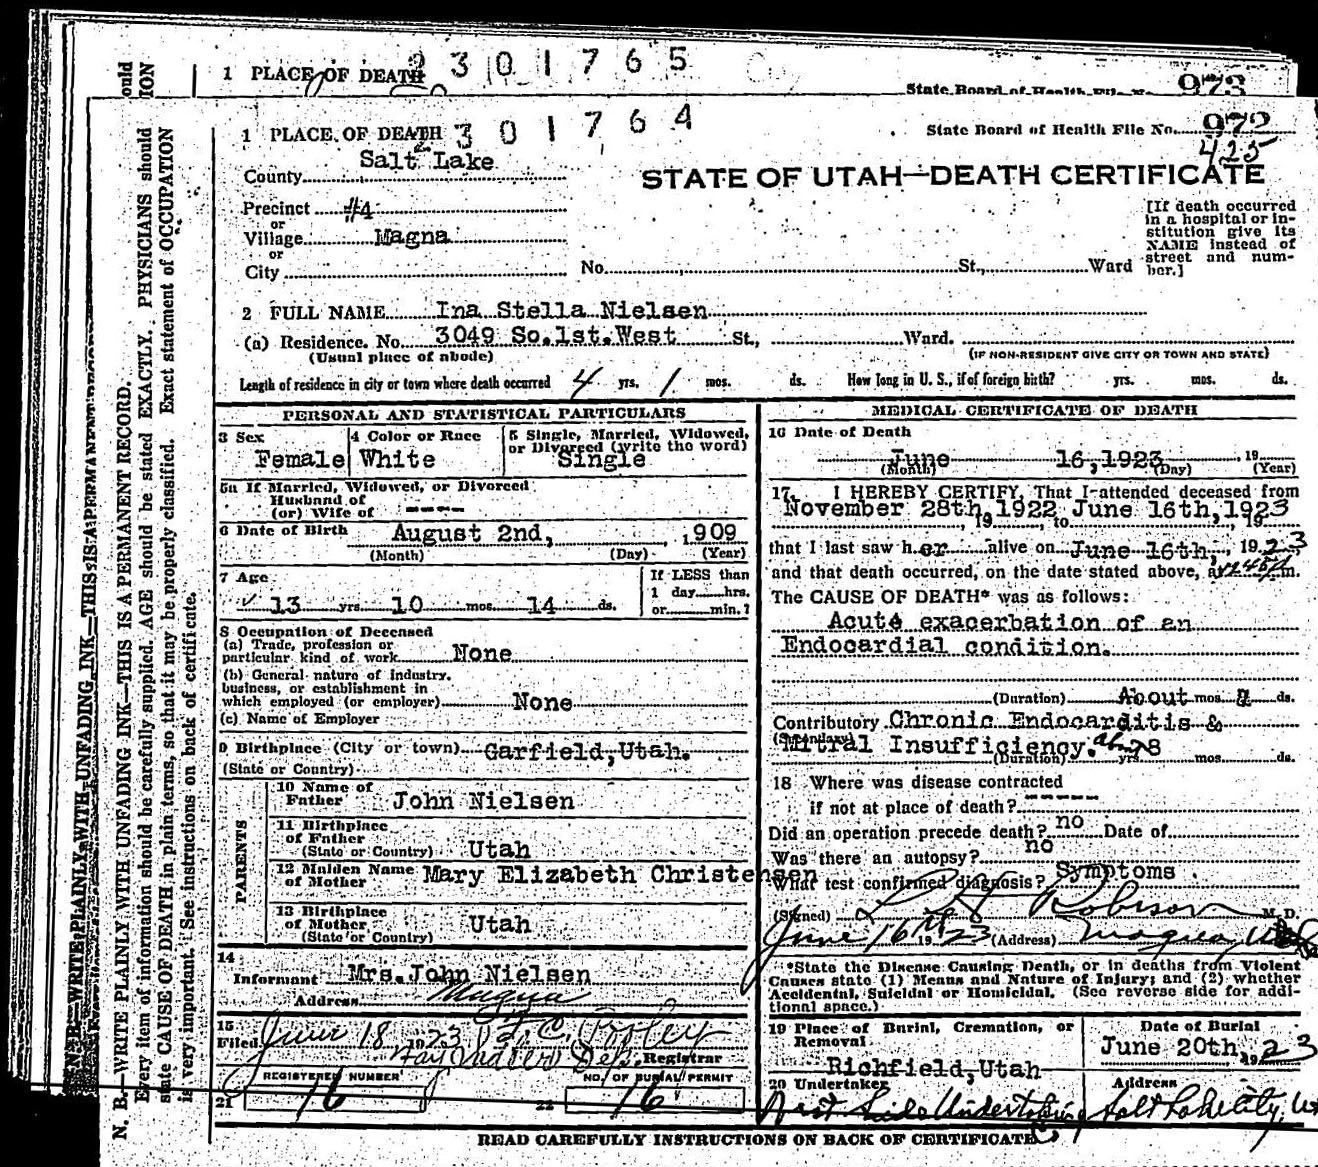 1 PLACE OF DEATH 2 3 0 1 7 6 5
State Board of Health File No. 973
1 PLACE OF DEATH 2 3 0 1 7 6 4
State Board of Health File No. 972
425
County Salt Lake
STATE OF UTAH—DEATH CERTIFICATE
Precinct #4
or
Village Magna
or
City No. St., Ward
[If death occurred
in a hospital or in-
stitution give its
NAME instead of
street and num-
ber.]
2 FULL NAME Ina Stella Nielsen
(a) Residence. No. 3049 So.1st.West St., Ward.
(Usual place of abode) (IF NON-RESIDENT GIVE CITY OR TOWN AND STATE)
Length of residence in city or town where death occurred 4 yrs. 1 mos. ds. How long in U. S., if of foreign birth? yrs. mos. ds.
PERSONAL AND STATISTICAL PARTICULARS
3 Sex Female
4 Color or Race White
5 Single, Married, Widowed,
or Divorced (write the word)
Single
5a If Married, Widowed, or Divorced
Husband of
(or) Wife of ----
6 Date of Birth August 2nd, 1909
(Month) (Day) (Year)
7 Age
13 yrs. 10 mos. 14 ds.
If LESS than
1 day hrs.
or min.?
8 Occupation of Deceased
(a) Trade, profession or
particular kind of work None
(b) General nature of industry,
business, or establishment in
which employed (or employer) None
(c) Name of Employer
9 Birthplace (City or town) Garfield,Utah.
(State or Country)
PARENTS
10 Name of
Father John Nielsen
11 Birthplace
of Father
(State or Country) Utah
12 Maiden Name
of Mother Mary Elizabeth Christensen
13 Birthplace
of Mother
(State or Country) Utah
14
Informant Mrs.John Nielsen
Address Magna
15
Filed June 18 1923
Registrar
REGISTERED NUMBER NO. OF BURIAL PERMIT
21 16 22 16
MEDICAL CERTIFICATE OF DEATH
16 Date of Death
June 16,1923, 19
(Month) (Day) (Year)
17. I HEREBY CERTIFY, That I attended deceased from
November 28th,1922 June 16th,1923
, 19 , to , 19
that I last saw her alive on June 16th, 1923
and that death occurred, on the date stated above, at m.
The CAUSE OF DEATH* was as follows:
Acute exacerbation of an
Endocardial condition.
(Duration) About mos. ds.
Contributory Chronic Endocarditis &
(Secondary) Mitral Insufficiency. 8
(Duration) yrs. mos. ds.
18 Where was disease contracted
if not at place of death? -----
Did an operation precede death? no Date of
Was there an autopsy? no
What test confirmed diagnosis? Symptoms
(Signed) Robison M. D.
June 16th 1923 (Address) Magna Utah
*State the Disease Causing Death, or in deaths from Violent
Causes state (1) Means and Nature of Injury; and (2) whether
Accidental, Suicidal or Homicidal. (See reverse side for addi-
tional space.)
19 Place of Burial, Cremation, or
Removal
Richfield,Utah
Date of Burial
June 20th, 1923
20 Undertaker
West Side Undertaking
Address
Salt Lake City, Ut
READ CAREFULLY INSTRUCTIONS ON BACK OF CERTIFICATE
N. B.—WRITE PLAINLY WITH UNFADING INK—THIS IS A PERMANENT RECORD.
Every item of information should be carefully supplied. AGE should be stated EXACTLY. PHYSICIANS should
state CAUSE OF DEATH in plain terms, so that it may be properly classified. Exact statement of OCCUPATION
is very important. See instructions on back of certificate.
N. B.—WRITE PLAINLY WITH UNFADING INK—THIS IS A PERMANENT RECORD
ould
ION